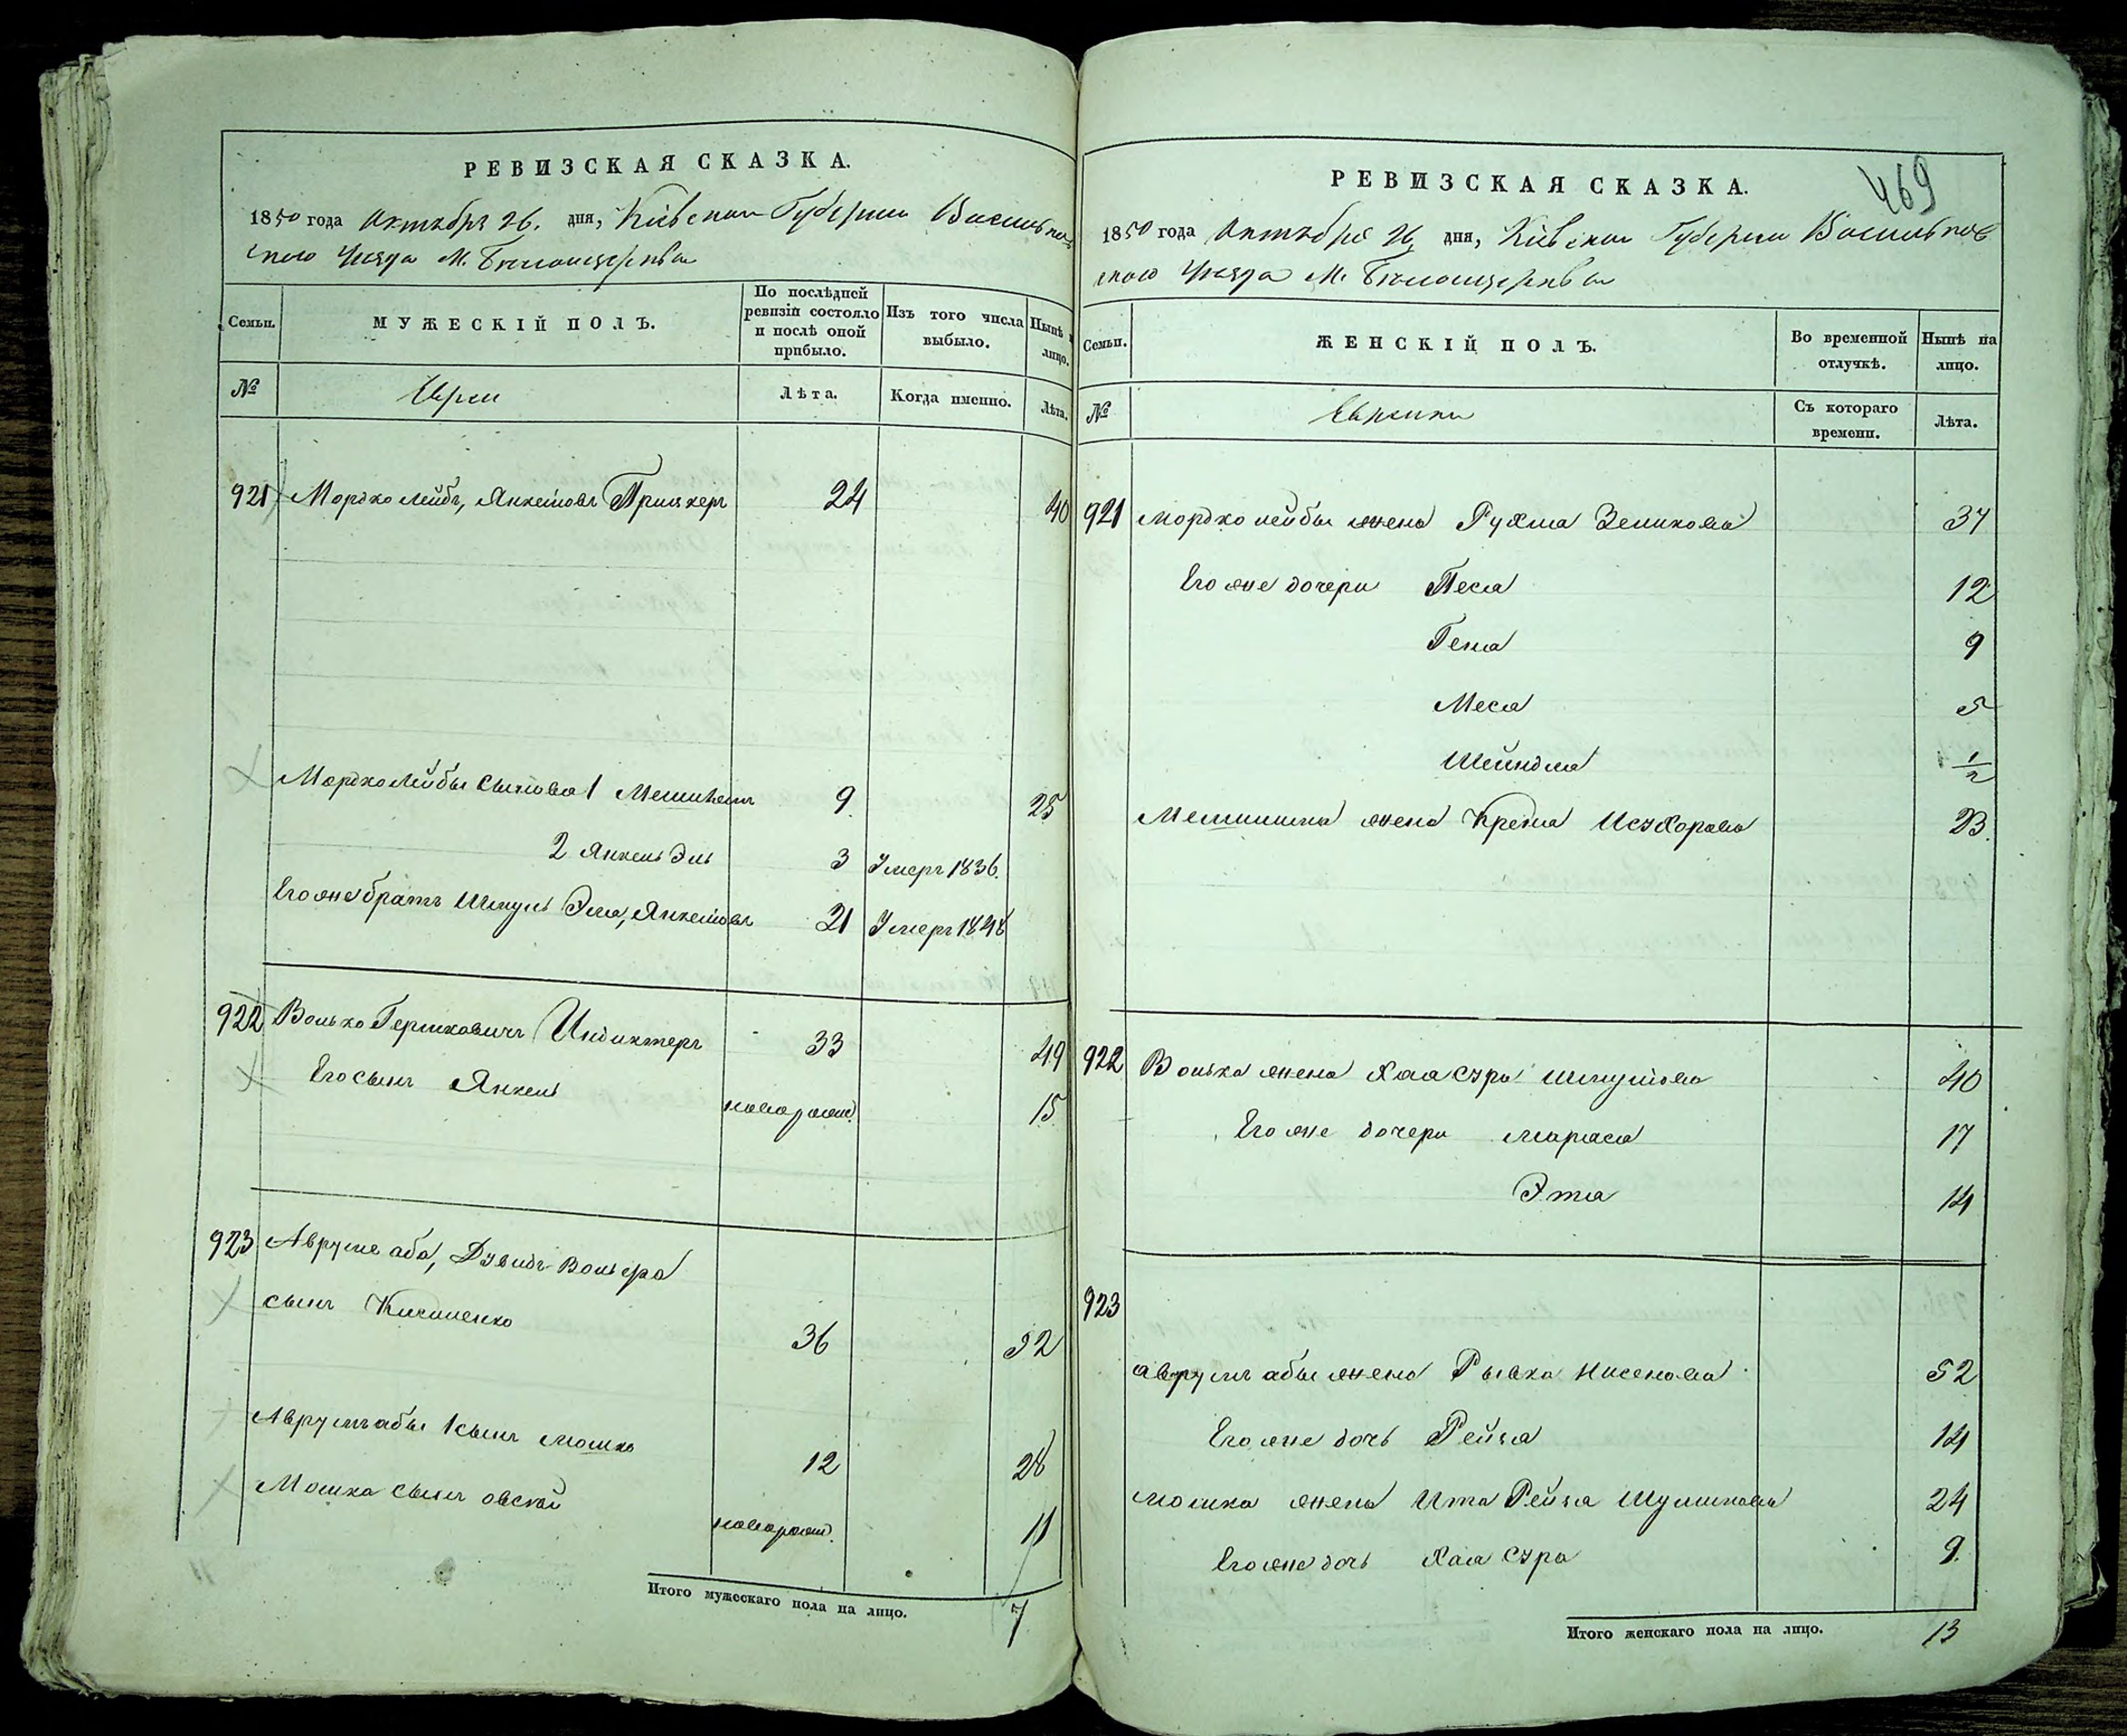 РЕВИЗСКАЯ СКАЗКА.
1850 года Октября 26. дня, Кіевской Губерніи Васильков-
скаго Уѣзда М. Бѣлоцеркви
Семьи. МУЖЕСКІЙ ПОЛЪ. По послѣдней ревизіи состояло и послѣ оной прибыло. Изъ того числа выбыло. Нынѣ лицо.
№ Евреи Лѣта. Когда именно. Лѣта.
921 Мордко Лейбъ, Янкелювъ Прицкеръ 24 40
Мордко Лейбы сыновья 1 24 9 25
2 Янкель Эль 3 Умеръ 1836.
Его же братъ Шмуль Эля, Янкелювъ 21 Умеръ 1848
922 Волько Гершковичъ Индиктеръ 33 49
Его сынъ Янкель новорожд. 15
923 Аврумъ аба, Дувидъ Вольфа
сынъ Кичиненко 36 52
Аврумъ абы 1 сынъ Мошко 12 28
Мошка сынъ Овсей новорожд. 11
Итого мужескаго пола на лицо. 7
469
РЕВИЗСКАЯ СКАЗКА.
1850 года Октября 26 дня, Кіевской Губерніи Васильков-
скаго Уѣзда М. Бѣлоцеркви
Семьи. ЖЕНСКІЙ ПОЛЪ. Во временной отлучкѣ. Нынѣ на лицо.
№ Еврейки Съ котораго времени. Лѣта.
921 Мордко Лейбы жена Рухля Зеликова 37
Его же дочери Песя 12
Геня 9
Меся 5
Шейндля 1/2
жена Креня Исухорова 23.
922 Волька жена Хая Сура Шмулёва 40
Его же дочери Маряся 17
Этя 14
923
Аврумъ абы жена Рывка Нисенова 52
Его же дочь Рейзя 14
Мошка жена Ита Рейзя Шулимова 24
Его же дочь Хая Сура 9.
Итого женскаго пола на лицо. 13